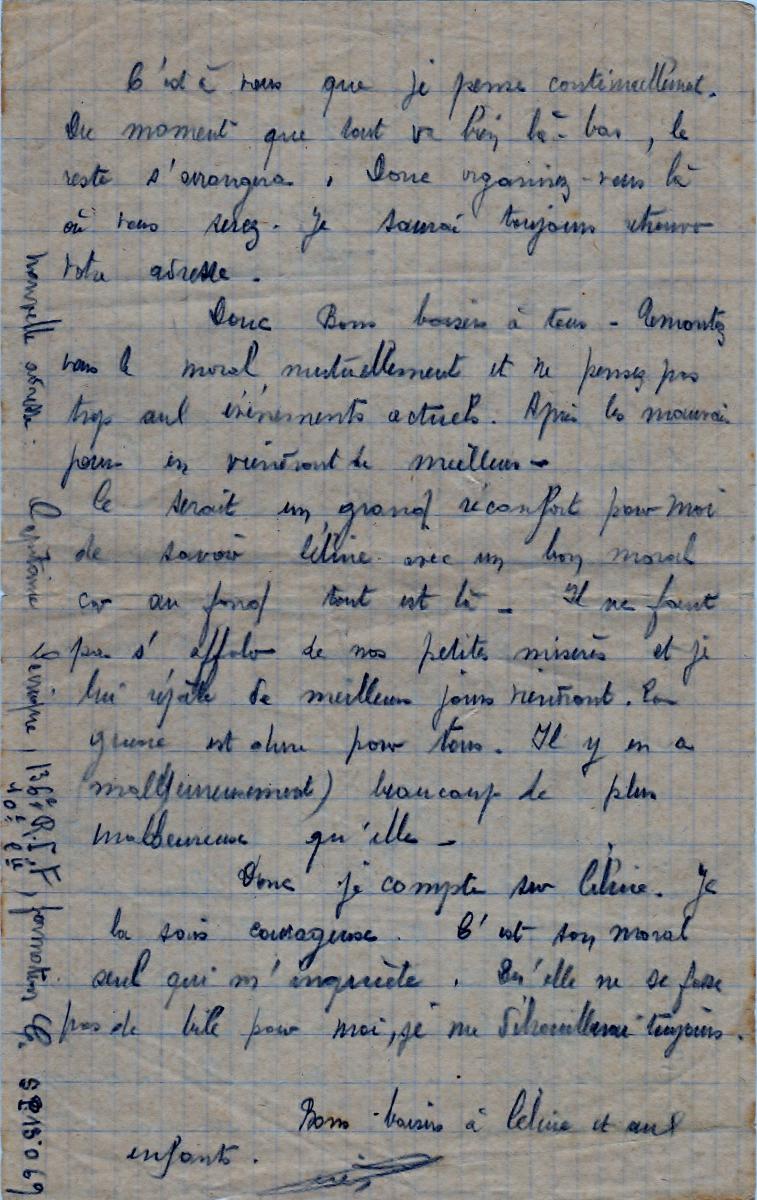 C'est à vous que je pense continuellement.
Du moment que tout va bien là-bas, le
reste s'arrangera. Donc organisez-vous là
où vous serez. Je saurai toujours retrouver
votre adresse.
Donc Bons baisers à tous - Remontez
vous le moral mutuellement et ne pensez pas
trop aux événements actuels. Après les mauvais
jours en viendront de meilleurs -
Ce serait un grand réconfort pour moi
de savoir Céline avec un bon moral
car au fond tout est là - Il ne faut
pas s'affoler de nos petites misères et je
lui répète de meilleurs jours viendront. La
guerre est dure pour tous. Il y en a
malheureusement) beaucoup de plus
malheureuse qu'elle -
Donc je compte sur Céline. Je
la sais courageuse. C'est son moral
seul qui m'inquiète. Qu'elle ne se fasse
pas de bile pour moi, je me débrouillerai toujours.
Bons baisers à Céline et aux
enfants.
nouvelle adresse: Capitaine 136e R.I.F,
10e Cie formation C. SP 15.069